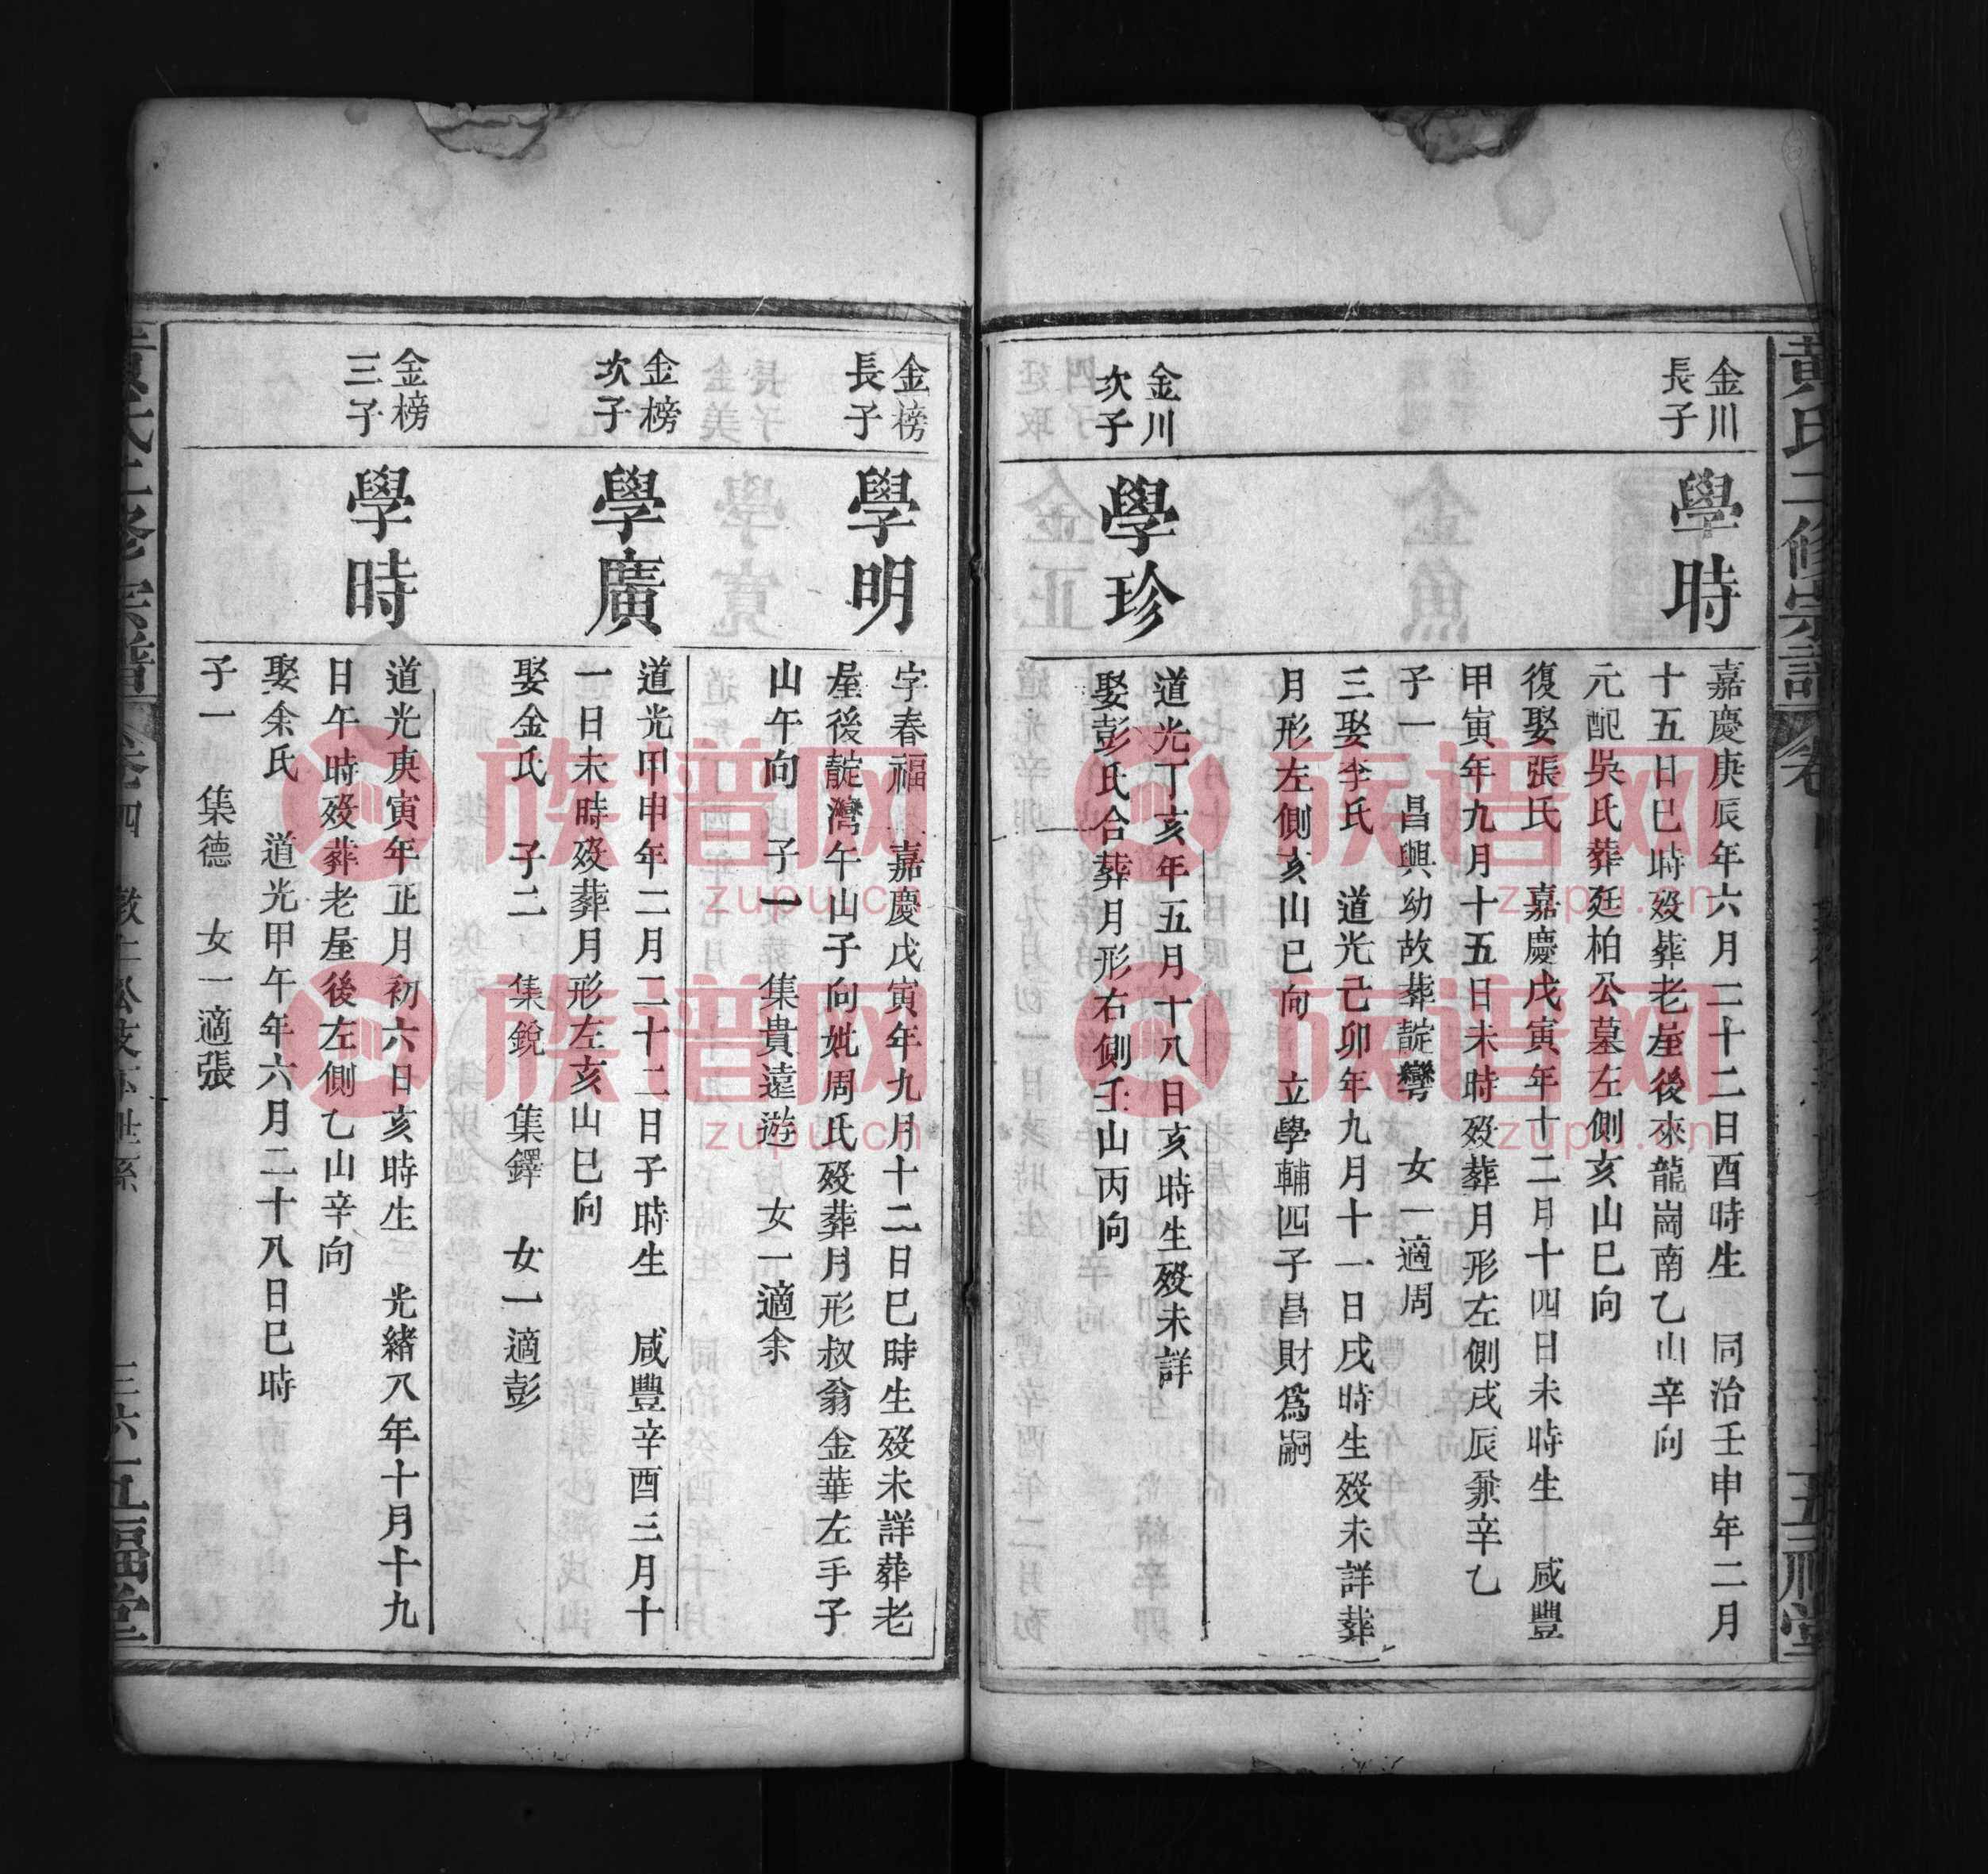 金川
長子
學時
嘉慶庚辰年六月二十二日酉時生　同治壬申年二月
十五日巳時歿葬老屋後來龍崗南乙山辛向
元配吳氏葬廷柏公墓左側亥山巳向
復娶張氏　嘉慶戊寅年十二月十四日未時生　咸豐
甲寅年九月十五日未時歿葬月形左側戌辰兼辛乙
子一　昌興幼故葬靛灣　女一適周
三娶李氏　道光己卯年九月十一日戌時生歿未詳葬
月形左側亥山巳向　立學輔四子昌財爲嗣
金川
次子
學珍
道光丁亥年五月十八日亥時生歿未詳
娶彭氏合葬月形右側壬山丙向
金榜
長子
學明
字春福　嘉慶戊寅年九月十二日巳時生歿未詳葬老
屋後靛灣午山子向妣周氏歿葬月形叔翁金華左手子
山午向　子一　集貴遠游　女一適余
金榜
次子
學廣
道光甲申年二月二十二日子時生　咸豐辛酉三月十
一日未時歿葬月形左亥山巳向
娶金氏　子二　集銳　集鐸　女一適彭
金榜
三子
學時
道光庚寅年正月初六日亥時生　光緒八年十月十九
日午時歿葬老屋後左側乙山辛向
娶余氏　道光甲午年六月二十八日巳時
子一　集德　女一適張
卷四
五福堂
族谱网
zupu.cn
族谱网
zupu.cn
族谱网
zupu.cn
族谱网
zupu.cn